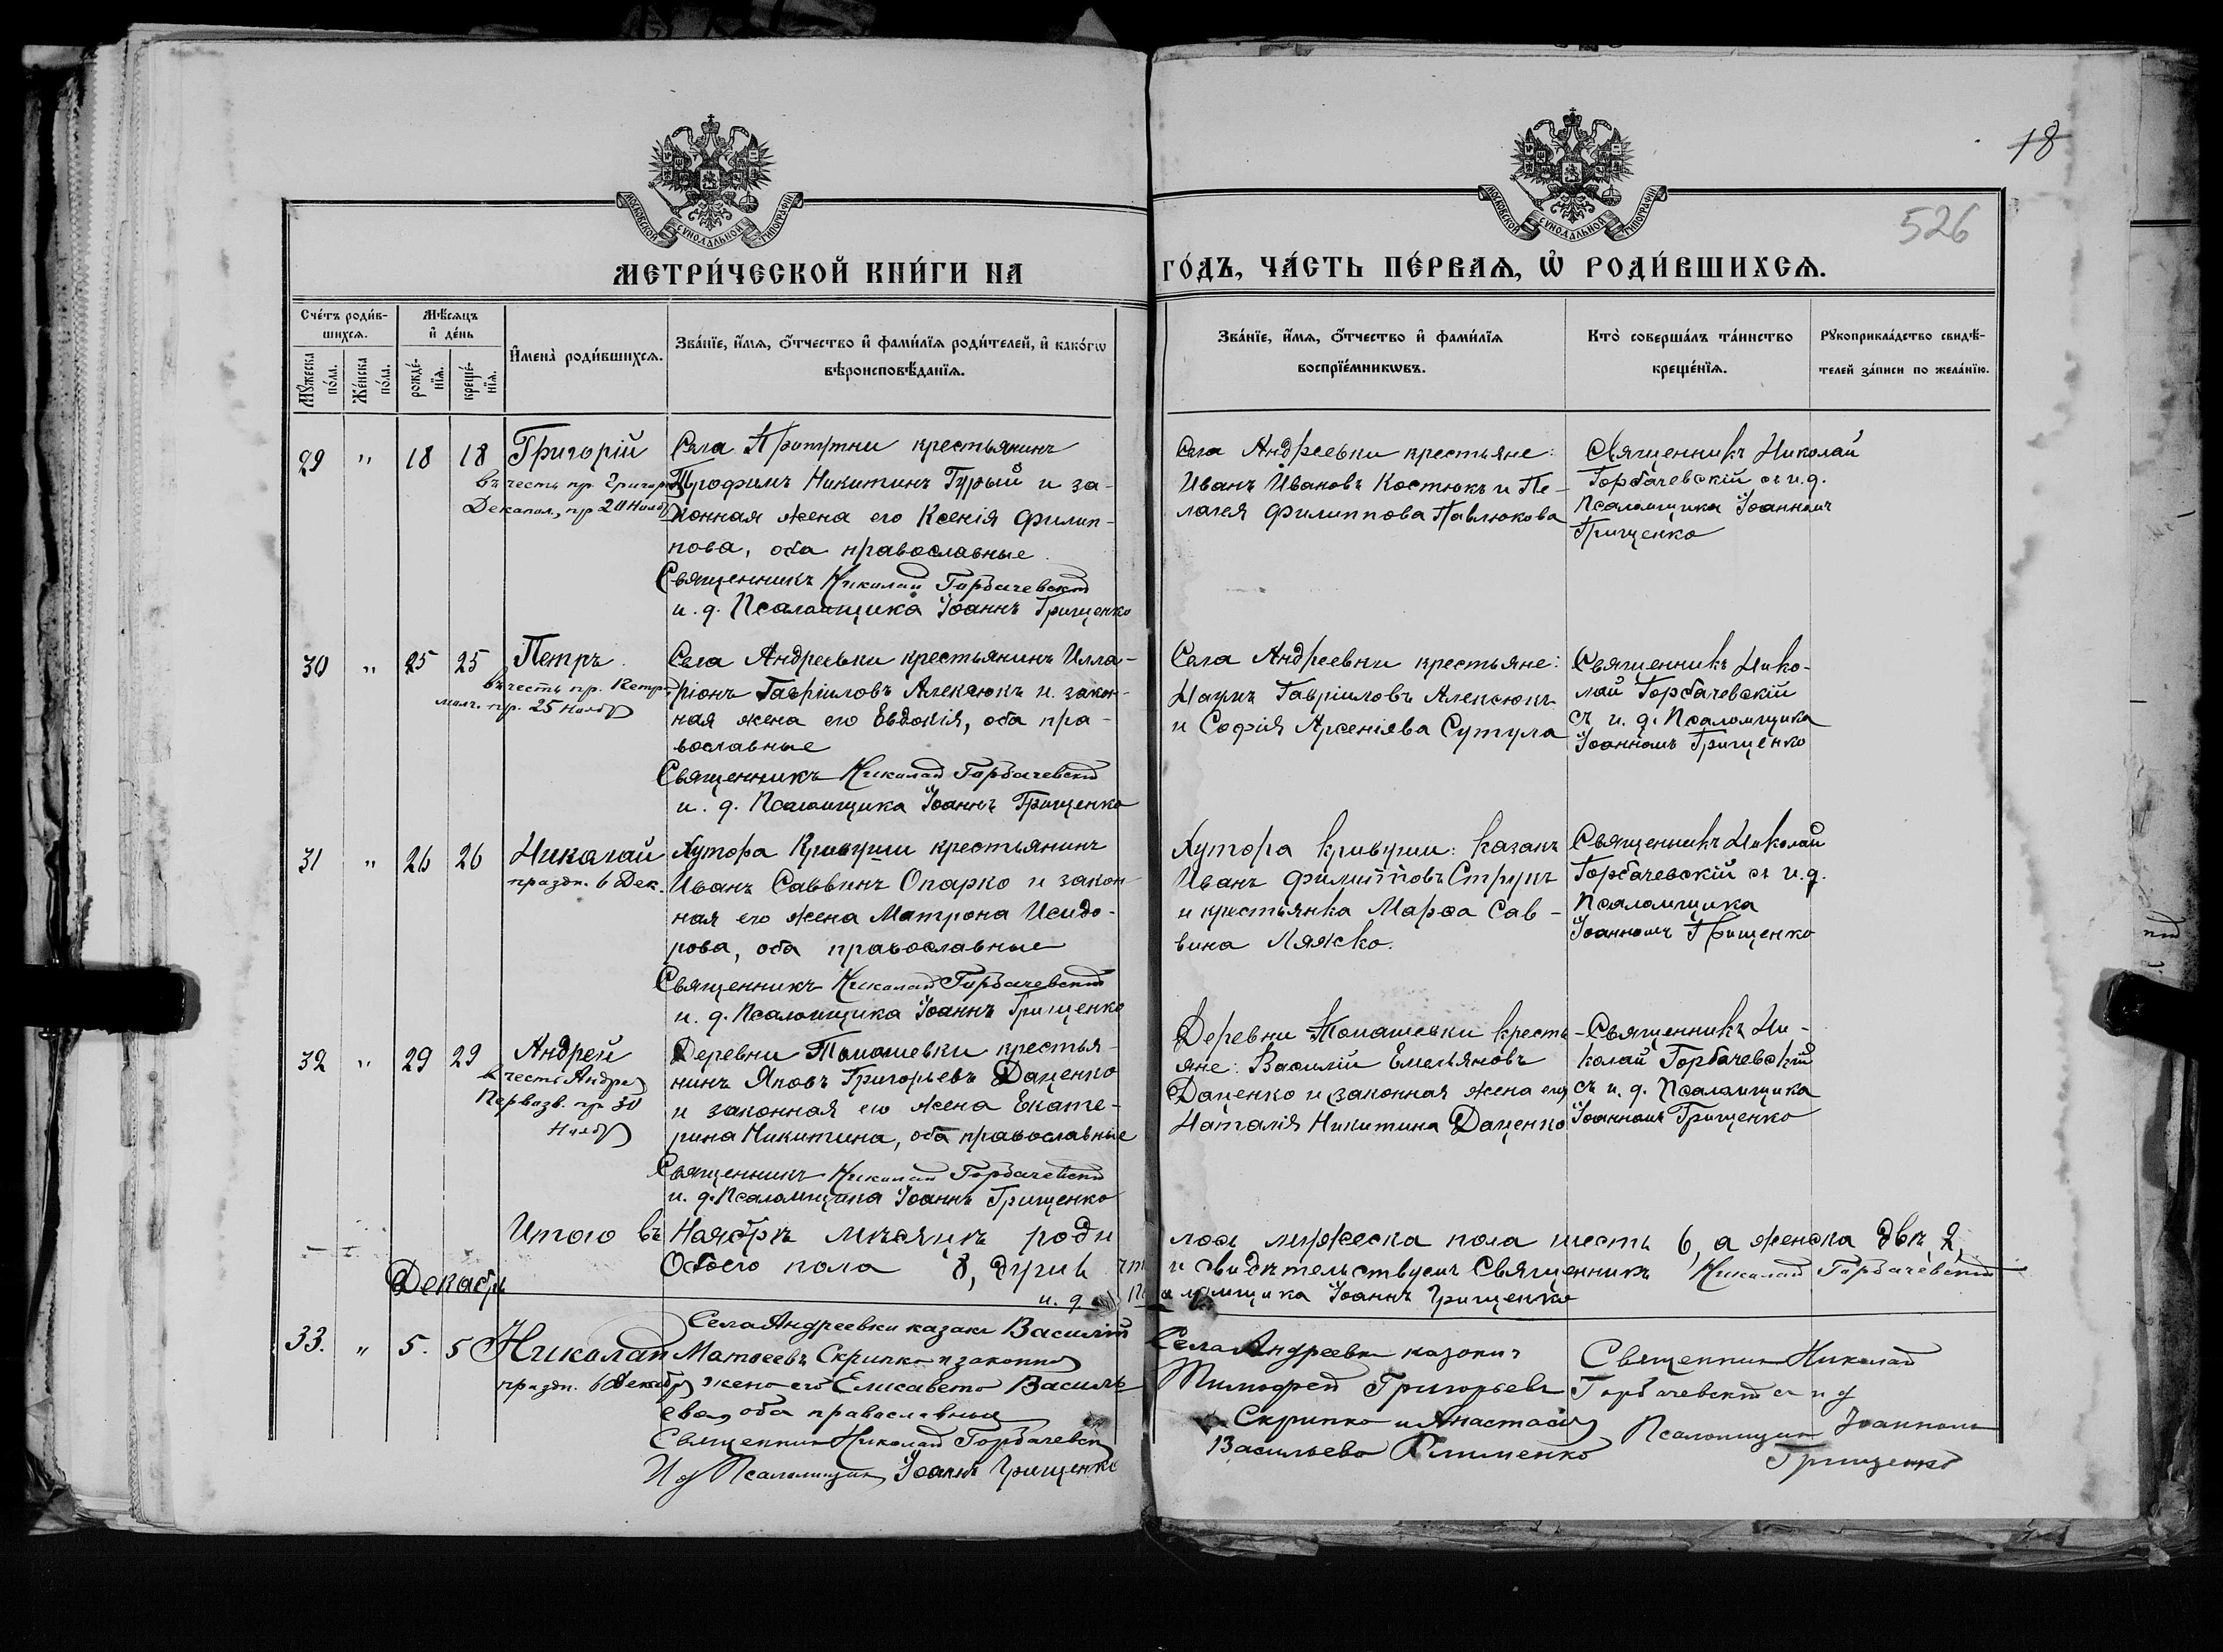 18
526
МОСКОВСКОЙ СѴНОДАЛЬНОЙ ТИПОГРАФІИ
МОСКОВСКОЙ СѴНОДАЛЬНОЙ ТИПОГРАФІИ
МЕТРИ́ЧЕСКОЙ КНИ́ГИ НА
ГО́ДЪ, ЧА́СТЬ ПЕ́РВАѦ, Ѡ РОДИ́ВШИХСѦ.
Счетъ роди́в-
шихсѧ.
Мꙋжеска по́ла.
Же́нска по́ла.
Мѣ́сѧцъ
и҆ де́нь
рожде́-
нїѧ.
креще́-
нїѧ.
И҆мена̀ роди́вшихсѧ.
Зва́нїе, и҆́мѧ, ѻ҆́тчество и҆ фами́лїѧ роди́телей, и҆ како́гѡ
вѣроисповѣ́данїѧ.
Зва́нїе, и҆́мѧ, ѻ҆́тчество и҆ фами́лїѧ
воспрїе́мникѡвъ.
Кто̀ соверша́лъ та́инство
креще́нїѧ.
Рꙋкоприкла́дство свидѣ́-
телей за́писи по жела́нїю.
29 " 18 18 Григорій
въ честь пр. Григор.
Декапол., пр 20 Нояб
Села Протутни крестьянинъ
Трофимъ Никитинъ Гурый и за-
конная жена его Ксенія Филип-
пова, оба православные.
Священникъ Николай Горбачевскій
и. д. Псаломщика Іоаннъ Грищенко
Села Андреевки крестьяне:
Иванъ Ивановъ Костюкъ и Пе-
лагея Филиппова Павлюкова
Священникъ Николай
Горбачевскій съ и.д.
Псаломщика Іоанномъ
Грищенко
30 " 25 25 Петръ
въ честь пр. Петра
молч. пр. 25 Ноябр
Села Андреевки крестьянинъ Илла-
ріонъ Гавріиловъ Алексюкъ и закон-
ная жена его Евдокія, оба пра-
вославные
Священникъ Николай Горбачевскій
и. д. Псаломщика Іоаннъ Грищенко
Села Андреевки крестьяне:
Наумъ Гавріиловъ Алексюкъ
и Софія Арсеніева Сутула
Священникъ Нико-
лай Горбачевскій
съ и. д. Псаломщика
Іоанномъ Грищенко
31 " 26 26 Николай
праздн. 6 Дек.
Хутора Кривуши крестьянинъ
Иванъ Саввинъ Опарко и закон-
ная его жена Матрона Исидо-
рова, оба православные
Священникъ Николай Горбачевскій
и. д. Псаломщика Іоаннъ Грищенко
Хутора Кривуши: казакъ
Иванъ Филипповъ Струкъ
и крестьянка Марѳа Сав-
вина Ляжко.
Священникъ Николай
Горбачевскій съ и.д.
Псаломщика
Іоанномъ Грищенко
32 " 29 29 Андрей
в честь Андрея
Первозв. пр 30
Ноябр
Деревни Томашевки крестья-
нинъ Яковъ Григорьевъ Даценко
и законная его жена Екате-
рина Никитина, оба православные
Священникъ Николай Горбачевскій
и. д. Псаломщика Іоаннъ Грищенко
Деревни Томашевки кресть-
яне: Василій Емельяновъ
Даценко и законная жена его
Наталія Никитина Даценко
Священникъ Ни-
колай Горбачевскій
съ и. д. Псаломщика
Іоанномъ Грищенко
Итого въ Ноябрѣ мѣсяцѣ роди
лось мужеска пола шесть 6, а женска двѣ 2,
Обоего пола 8,
и свидѣтельствуемъ Священникъ Николай Горбачевскій
и. д. Псаломщика Іоаннъ Грищенко
Декабрь
33. " 5. 5 Николай
праздн. 6 Декабр
Села Андреевки казакъ Василій
Матѳеевъ Скрипка и законная
жена его Елисавета Василь
ева, оба православные
Священникъ Николай Горбачевск
И д Псаломщика Іоаннъ Грищенко
Села Андреевки казакъ
Тимофей Григорьевъ
Скрипка и Анастасія
Васильева Клименко
Священникъ Николай
Горбачевскій съ и д
Псаломщика Іоанномъ
Грищенко